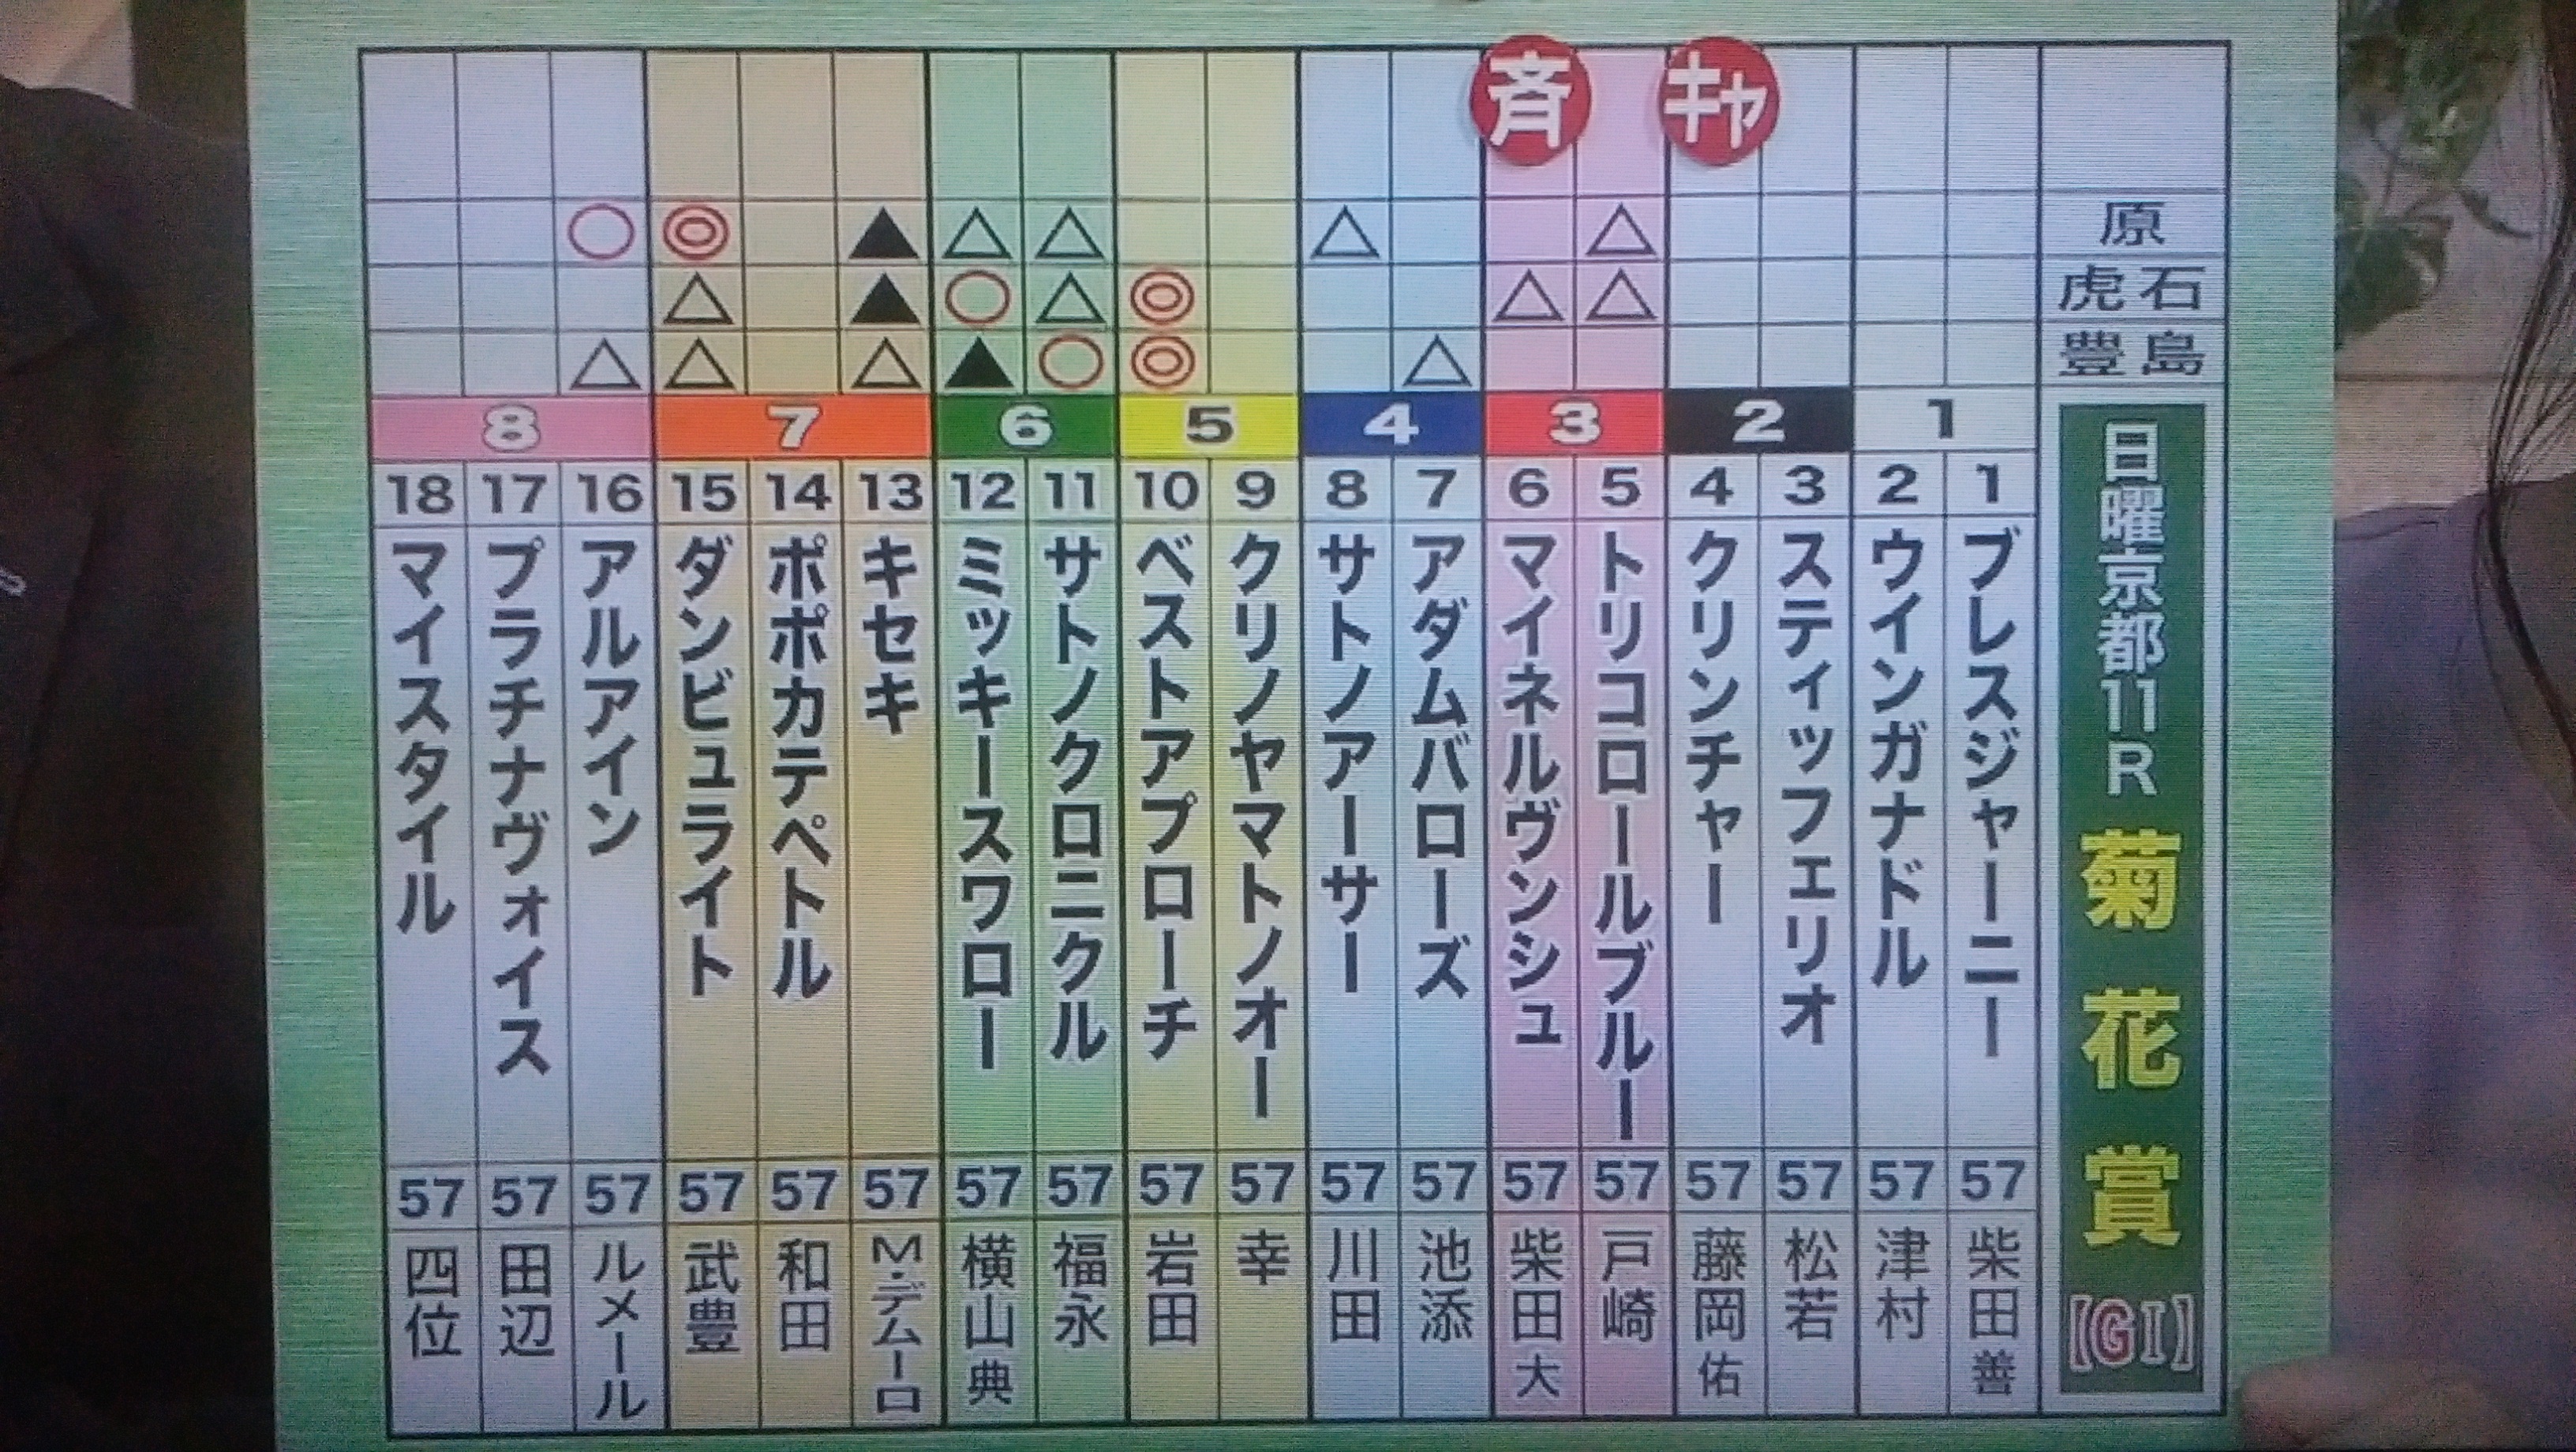 斉 キャ
原
○ ◎ ▲ △ △ △ △
虎石
△ ▲ ○ △ ◎ △ △
豊島
△ △ △ ▲ ○ ◎ △
日曜京都11R 菊花賞 【GI】
1
1 ブレスジャーニー 57 柴田善
2 ウインガナドル 57 津村
2
3 スティッフェリオ 57 松若
4 クリンチャー 57 藤岡佑
3
5 トリコロールブルー 57 戸崎
6 マイネルヴンシュ 57 柴田大
4
7 アダムバローズ 57 池添
8 サトノアーサー 57 川田
5
9 クリノヤマトノオー 57 幸
10 ベストアプローチ 57 岩田
6
11 サトノクロニクル 57 福永
12 ミッキースワロー 57 横山典
7
13 キセキ 57 M・デムーロ
14 ポポカテペトル 57 和田
15 ダンビュライト 57 武豊
8
16 アルアイン 57 ルメール
17 プラチナヴォイス 57 田辺
18 マイスタイル 57 四位